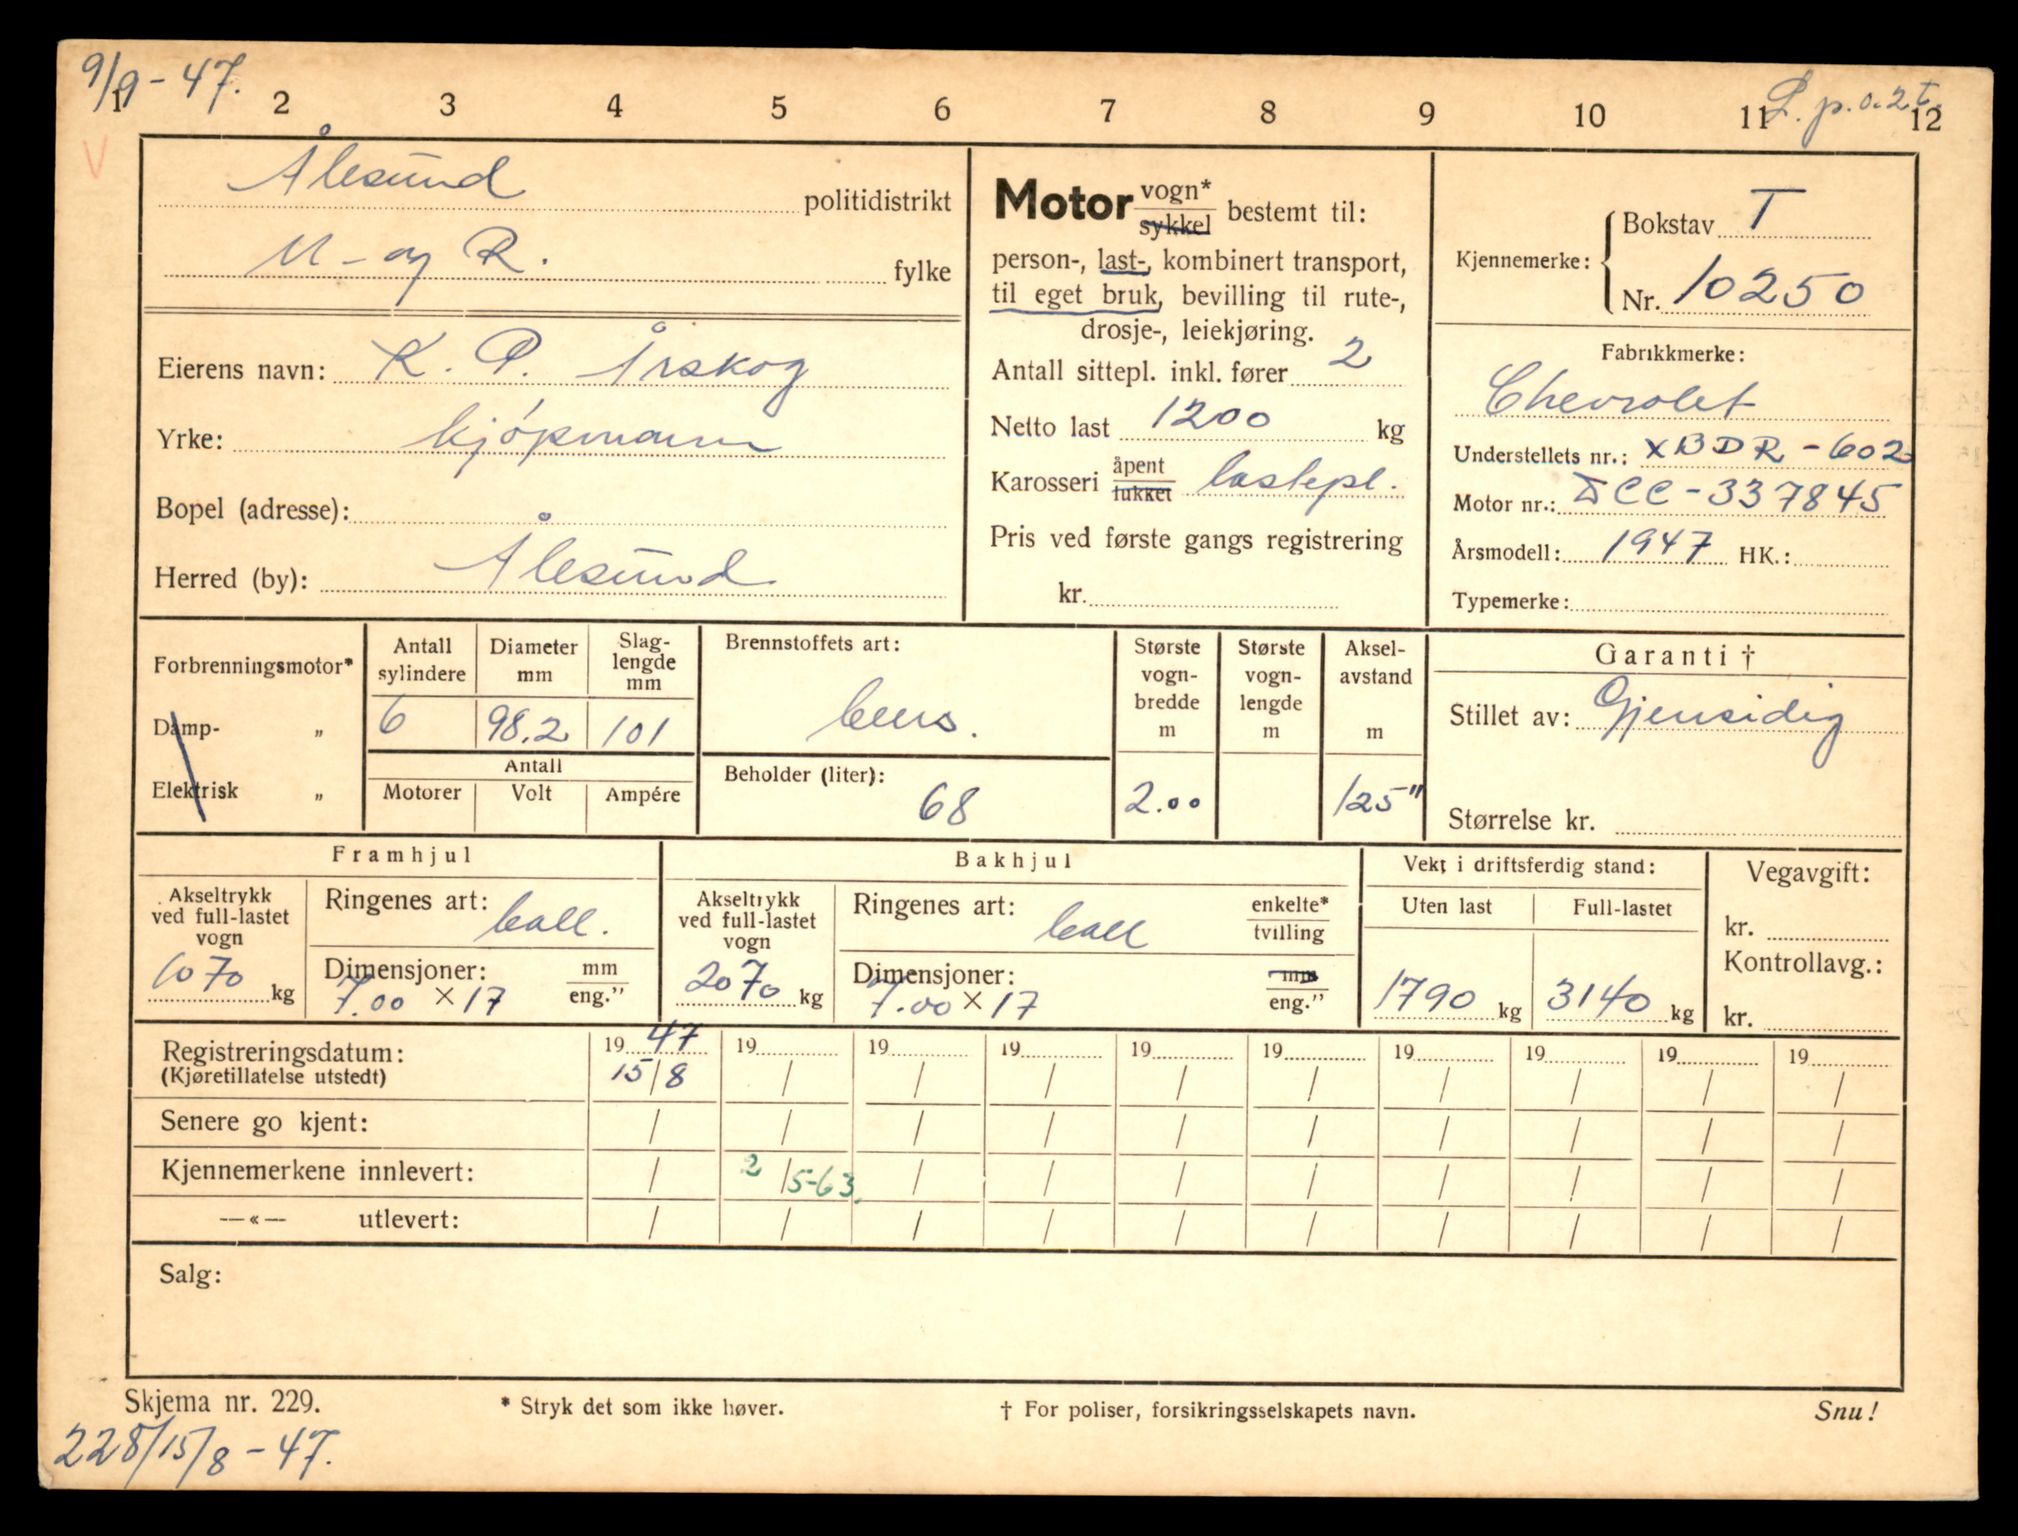 9/9-47.
L. p. o. 2 t.
1 2 3 4 5 6 7 8 9 10 11 12
V
Ålesund politidistrikt
M- og R. fylke
Eierens navn: K. P. Årskog
Yrke: kjöpmann
Bopel (adresse):
Herred (by): Ålesund
Motor vogn* / sykkel bestemt til:
person-, last-, kombinert transport,
til eget bruk, bevilling til rute-,
drosje-, leiekjøring.
Antall sittepl. inkl. fører 2
Netto last 1200 kg
Karosseri åpent / lukket lastepl.
Pris ved første gangs registrering
kr.
Kjennemerke: Bokstav T
Nr. 10250
Fabrikkmerke:
Chevrolet
Understellets nr.: XBDR-602
Motor nr.: CC-337845
Årsmodell: 1947 HK.:
Typemerke:
Forbrenningsmotor*
Damp- „
Elektrisk „
Antall sylindere 6
Diameter mm 98.2
Slaglengde mm 101
Antall
Motorer Volt Ampére
Brennstoffets art:
bens.
Beholder (liter):
68
Største vognbredde m 2.00
Største vognlengde m
Akselavstand m 125"
Garanti †
Stillet av: Gjensidig
Størrelse kr.
Framhjul
Akseltrykk ved full-lastet vogn
1070 kg
Ringenes art: ball.
Dimensjoner: mm / eng."
7.00 × 17
Bakhjul
Akseltrykk ved full-lastet vogn
2070 kg
Ringenes art: ball enkelte* / tvilling
Dimensjoner: mm / eng."
7.00 × 17
Vekt i driftsferdig stand:
Uten last Full-lastet
1790 kg 3140 kg
Vegavgift:
kr.
Kontrollavg.:
kr.
Registreringsdatum: 19 47 19 19 19 19 19 19 19 19 19
(Kjøretillatelse utstedt) 15/8 / / / / / / / / /
Senere go kjent: / / / / / / / / / /
Kjennemerkene innlevert: / 2/5-63. / / / / / / / /
—«— utlevert: / / / / / / / / / /
Salg:
Skjema nr. 229.
* Stryk det som ikke høver.
† For poliser, forsikringsselskapets navn.
Snu!
228/15/8-47.